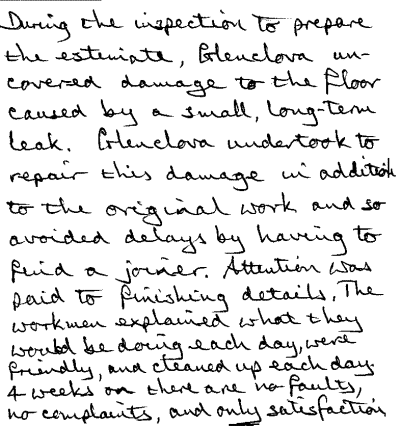 During the inspection to prepare
the estimate, Glenclova un-
covered damage to the floor
caused by a small, long-term
leak. Glenclova undertook to
repair this damage in addition
to the original work and so
avoided delays by having to
find a joiner. Attention was
paid to finishing details. The
workmen explained what they
would be doing each day, were
friendly, and cleaned up each day.
4 weeks on there are no faults,
no complaints, and only satisfaction